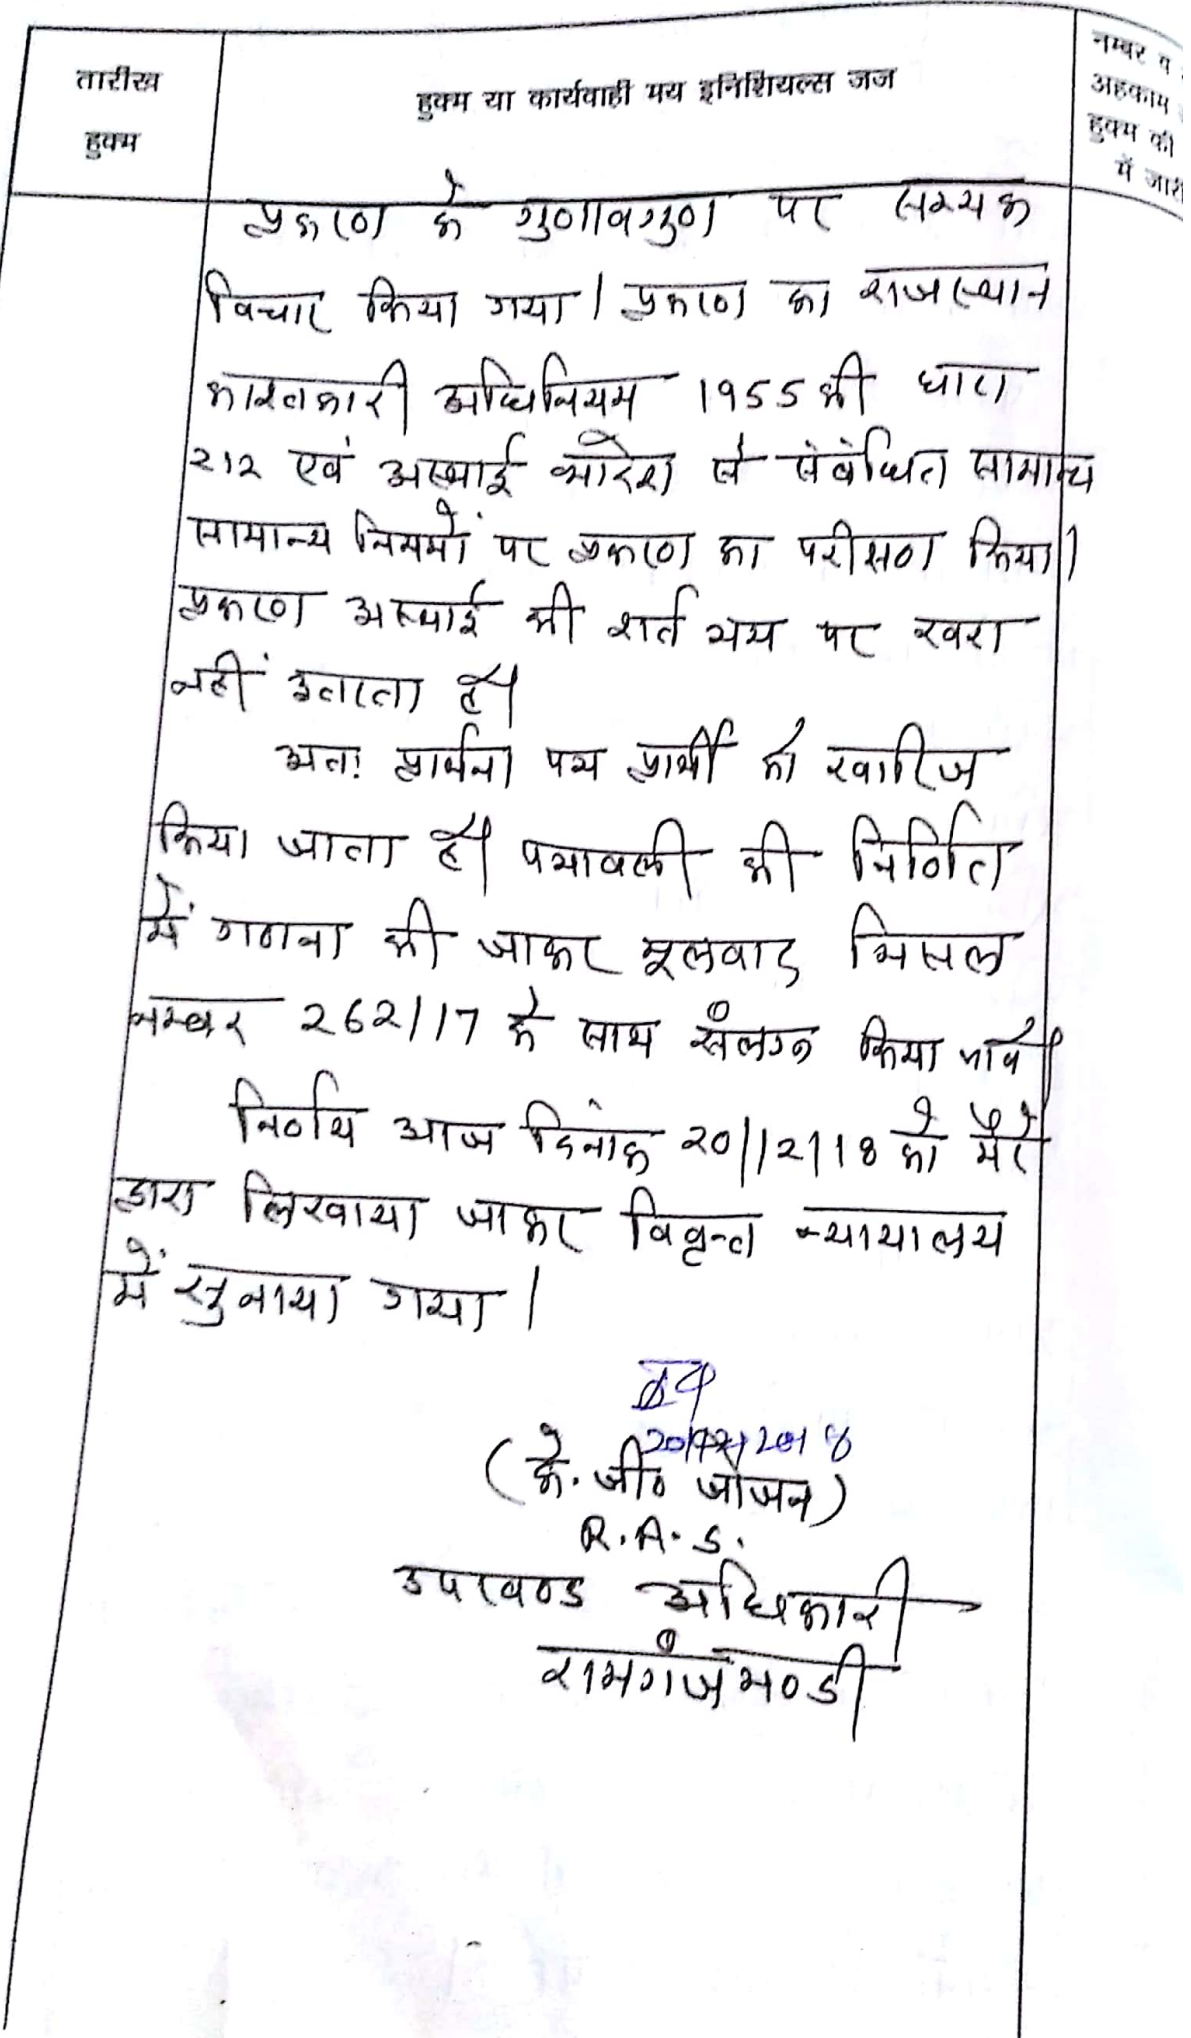 तारीख
हुक्म
हुक्म या कार्यवाही मय इनिशियल्स जज
नम्बर व
अहकाम
हुक्म की
में जारी
प्रकरण के गुणावगुण पर सम्यक
विचार किया गया। प्रकरण का राजस्थान
काश्तकारी अधिनियम 1955 की धारा
212 एवं अस्थाई आदेश से संबंधित सामान्य
सामान्य नियमों पर प्रकरण का परीक्षण किया।
प्रकरण अस्थाई की शर्त त्रय पर खरा
नहीं उतरता है।
अतः प्रार्थना पत्र प्रार्थी को खारिज
किया जाता है। पत्रावली की निर्णित
में गणना की जाकर मूलवाद मिसल
नम्बर 262/17 के साथ संलग्न किया जावे।
निर्णय आज दिनांक 20/12/18 को मेरे
द्वारा लिखाया जाकर विवृत्त न्यायालय
में सुनाया गया।
20/12/2018
(के. जी० जोजन)
R.A.S.
उपखण्ड अधिकारी
रामगंजमण्डी